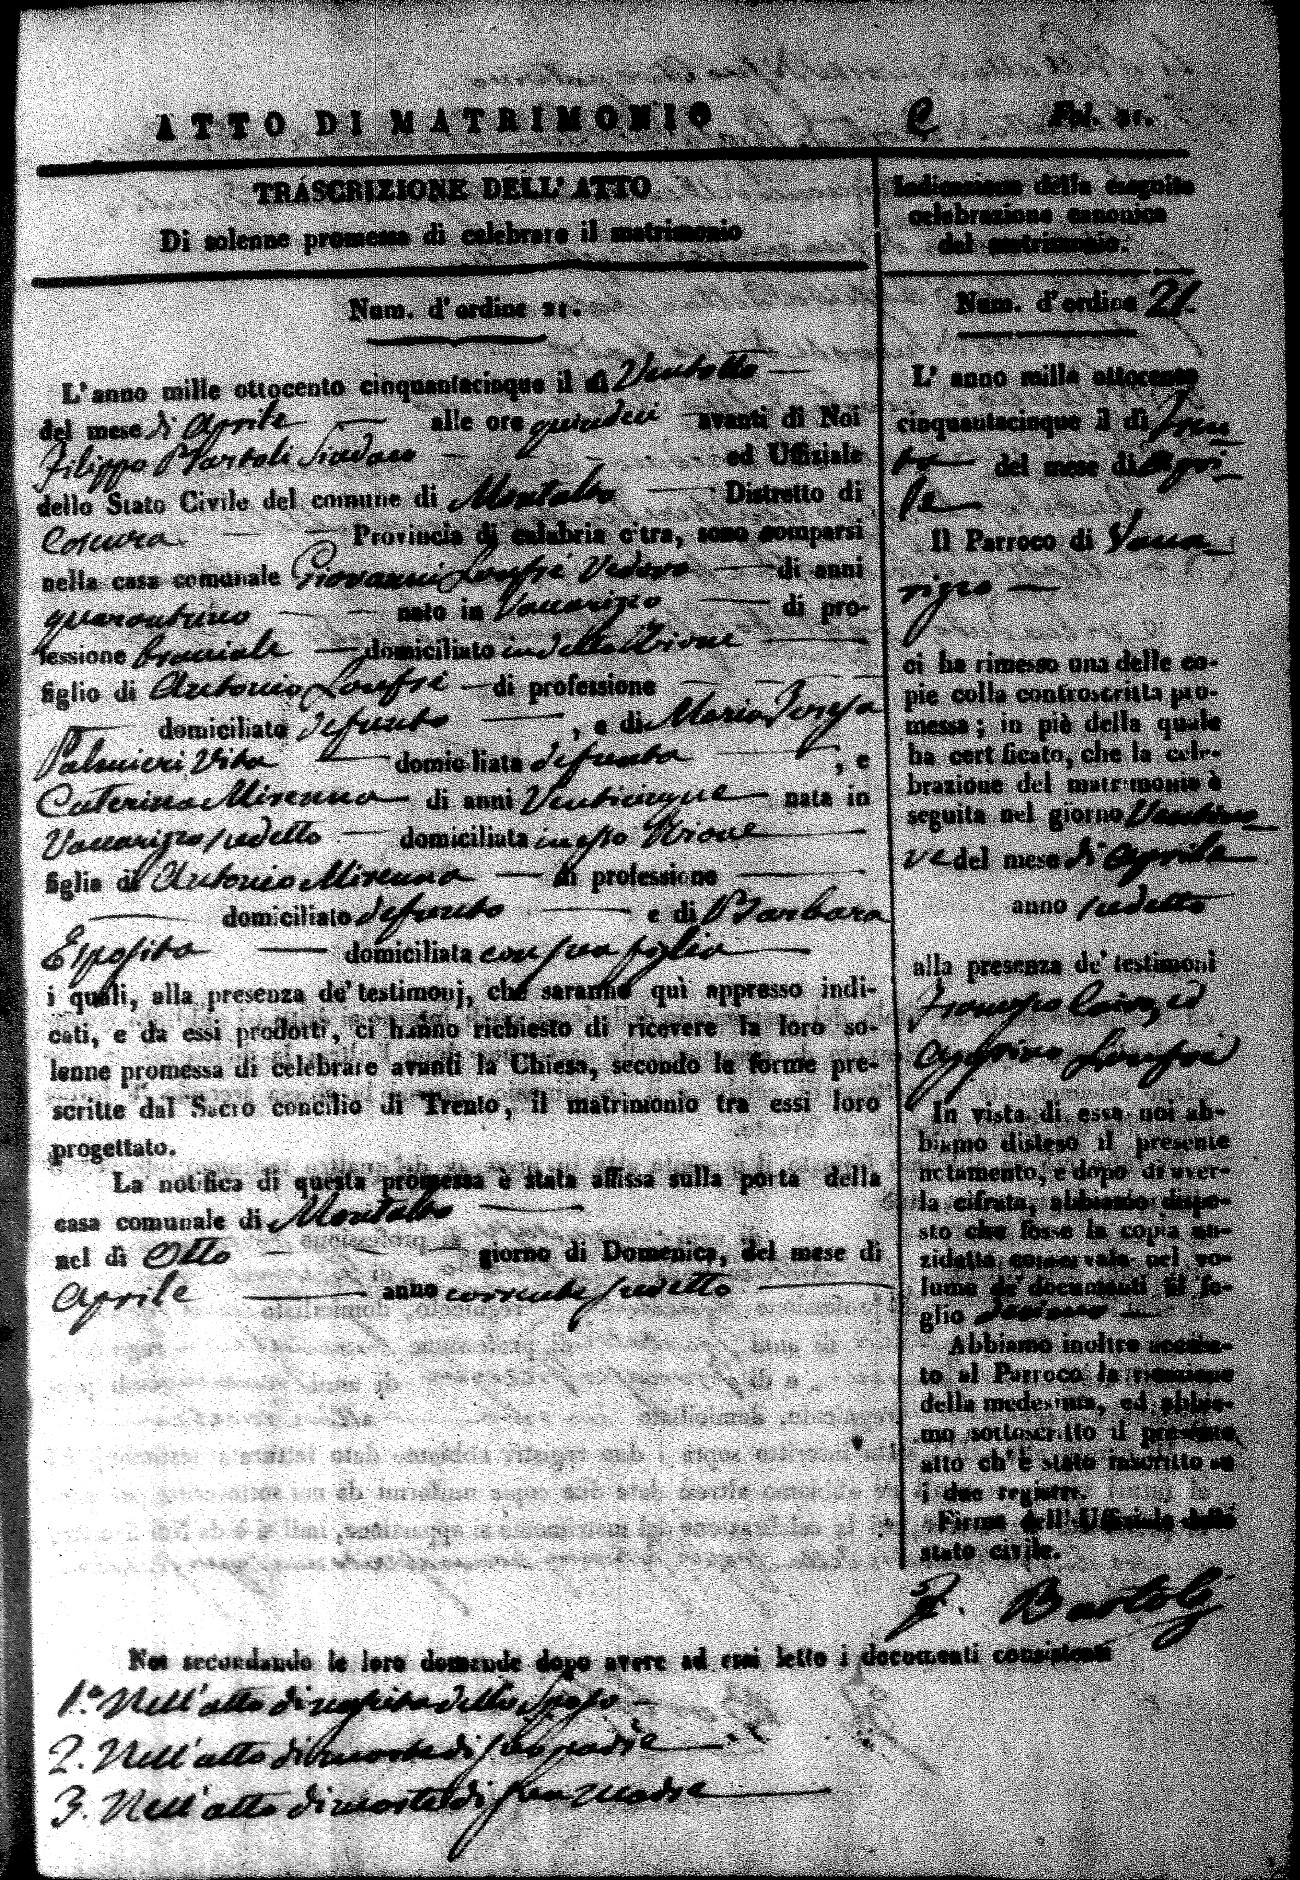 ATTO DI MATRIMONIO
Fol. 21.
TRASCRIZIONE DELL' ATTO
Di solenne promessa di celebrare il matrimonio
Num. d'ordine 21.
L'anno mille ottocento cinquantacinque il dì Ventotto
del mese di Aprile alle ore quindici avanti di Noi
Filippo Bartoli Sindaco ed Uffiziale
dello Stato Civile del comune di Montalto Distretto di
Cosenza Provincia di calabria citra, sono comparsi
nella casa comunale Giovanni Vedovo di anni
quarantuno nato in Vaccarizzo di pro-
fessione bracciale domiciliato in detto Rione
figlio di Antonio di professione
domiciliato defunto , e di Maria Teresa
Palmieri Vita domiciliata defunta , e
Caterina di anni Venticinque nata in
Vaccarizzo sudetto domiciliata in esso Rione
figlia di Antonio di professione
domiciliato defunto e di Barbara
Esposito domiciliata con sua figlia
i quali, alla presenza de' testimonj, che saranno quì appresso indi-
cati, e da essi prodotti, ci hanno richiesto di ricevere la loro so-
lenne promessa di celebrare avanti la Chiesa, secondo le forme pre-
scritte dal Sacro concilio di Trento, il matrimonio tra essi loro
progettato.
La notifica di questa promessa è stata affissa sulla porta della
casa comunale di Montalto
nel dì Otto giorno di Domenica, del mese di
Aprile anno corrente sudetto
Indicazione della eseguita
celebrazione canonica
del matrimonio.
Num. d'ordine 21.
L' anno mille ottocento
cinquantacinque il dì Tren
ta del mese di Apri
le
Il Parroco di Vacca
rizzo
ci ha rimesso una delle co-
pie colla controscritta pro-
messa; in piè della quale
ha certificato, che la cele-
brazione del matrimonio è
seguita nel giorno Ventino
ve del mese di Aprile
anno sudetto
alla presenza de' testimoni
Francesco ed
In vista di essa noi ab-
biamo disteso il presente
notamento, e dopo di aver-
la cifrata, abbiamo dispo-
sto che fosse la copia an-
zidetta conservata nel vo-
lume de' documenti al fo-
glio decimo
Abbiamo inoltre accusa-
to al Parroco la ricezione
della medesima, ed abbia-
mo sottoscritto il presente
atto ch'è stato inscritto su
i due registri.
Firma dell' Uffiziale dello
stato civile.
F. Bartoli
Noi secondando le loro domande dopo avere ad essi letto i documenti consistenti
1.° Nell'atto di nascita dello Sposo
2. Nell'atto di morte di suo padre
3. Nell'atto di morte di sua madre